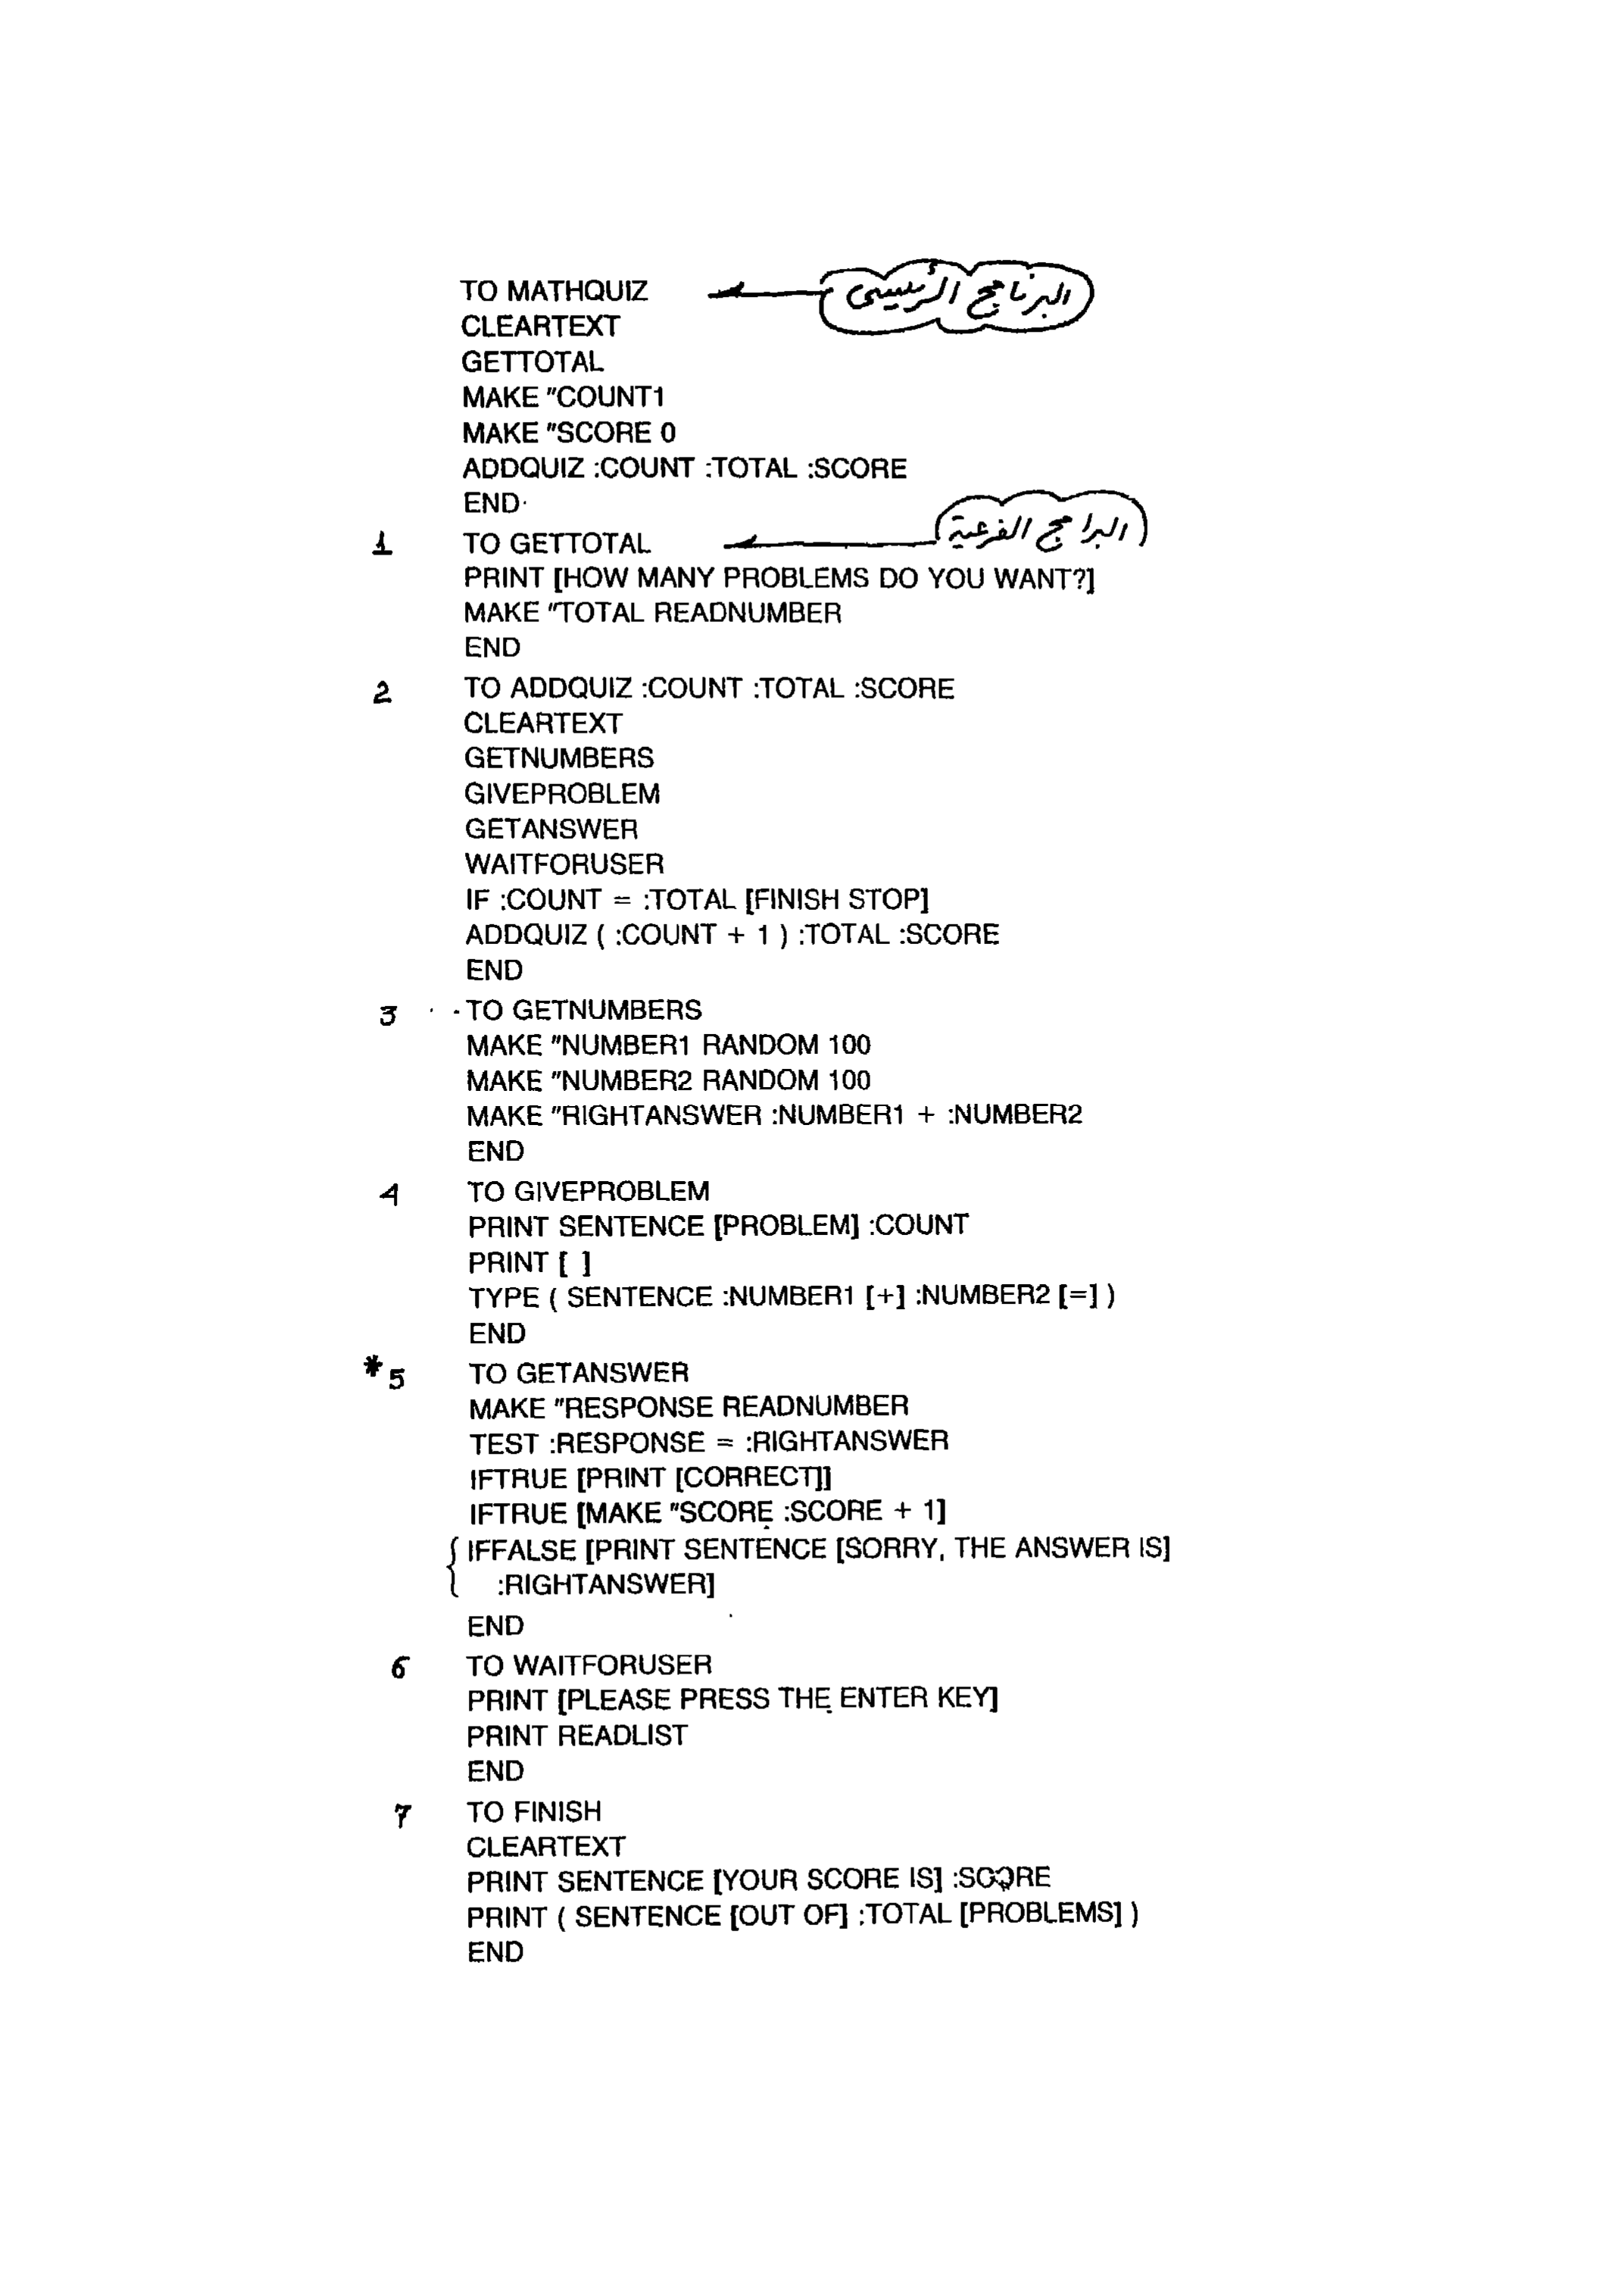 TO MATHQUIZ البرنامج الرئيسى
CLEARTEXT
GETTOTAL
MAKE "COUNT1
MAKE "SCORE 0
ADDQUIZ :COUNT :TOTAL :SCORE
END
1 TO GETTOTAL البرامج الفرعية
PRINT [HOW MANY PROBLEMS DO YOU WANT?]
MAKE "TOTAL READNUMBER
END
2 TO ADDQUIZ :COUNT :TOTAL :SCORE
CLEARTEXT
GETNUMBERS
GIVEPROBLEM
GETANSWER
WAITFORUSER
IF :COUNT = :TOTAL [FINISH STOP]
ADDQUIZ ( :COUNT + 1 ) :TOTAL :SCORE
END
3 TO GETNUMBERS
MAKE "NUMBER1 RANDOM 100
MAKE "NUMBER2 RANDOM 100
MAKE "RIGHTANSWER :NUMBER1 + :NUMBER2
END
4 TO GIVEPROBLEM
PRINT SENTENCE [PROBLEM] :COUNT
PRINT [ ]
TYPE ( SENTENCE :NUMBER1 [+] :NUMBER2 [=] )
END
*5 TO GETANSWER
MAKE "RESPONSE READNUMBER
TEST :RESPONSE = :RIGHTANSWER
IFTRUE [PRINT [CORRECT]]
IFTRUE [MAKE "SCORE :SCORE + 1]
IFFALSE [PRINT SENTENCE [SORRY, THE ANSWER IS]
:RIGHTANSWER]
END
6 TO WAITFORUSER
PRINT [PLEASE PRESS THE ENTER KEY]
PRINT READLIST
END
7 TO FINISH
CLEARTEXT
PRINT SENTENCE [YOUR SCORE IS] :SCORE
PRINT ( SENTENCE [OUT OF] :TOTAL [PROBLEMS] )
END